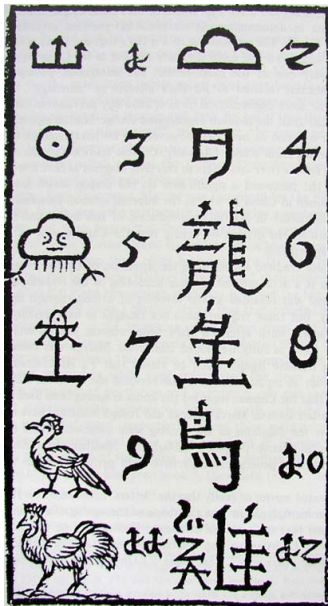 1 2
3 日 4
5 龍 6
7 8
9 鳥 10
11 雞 12